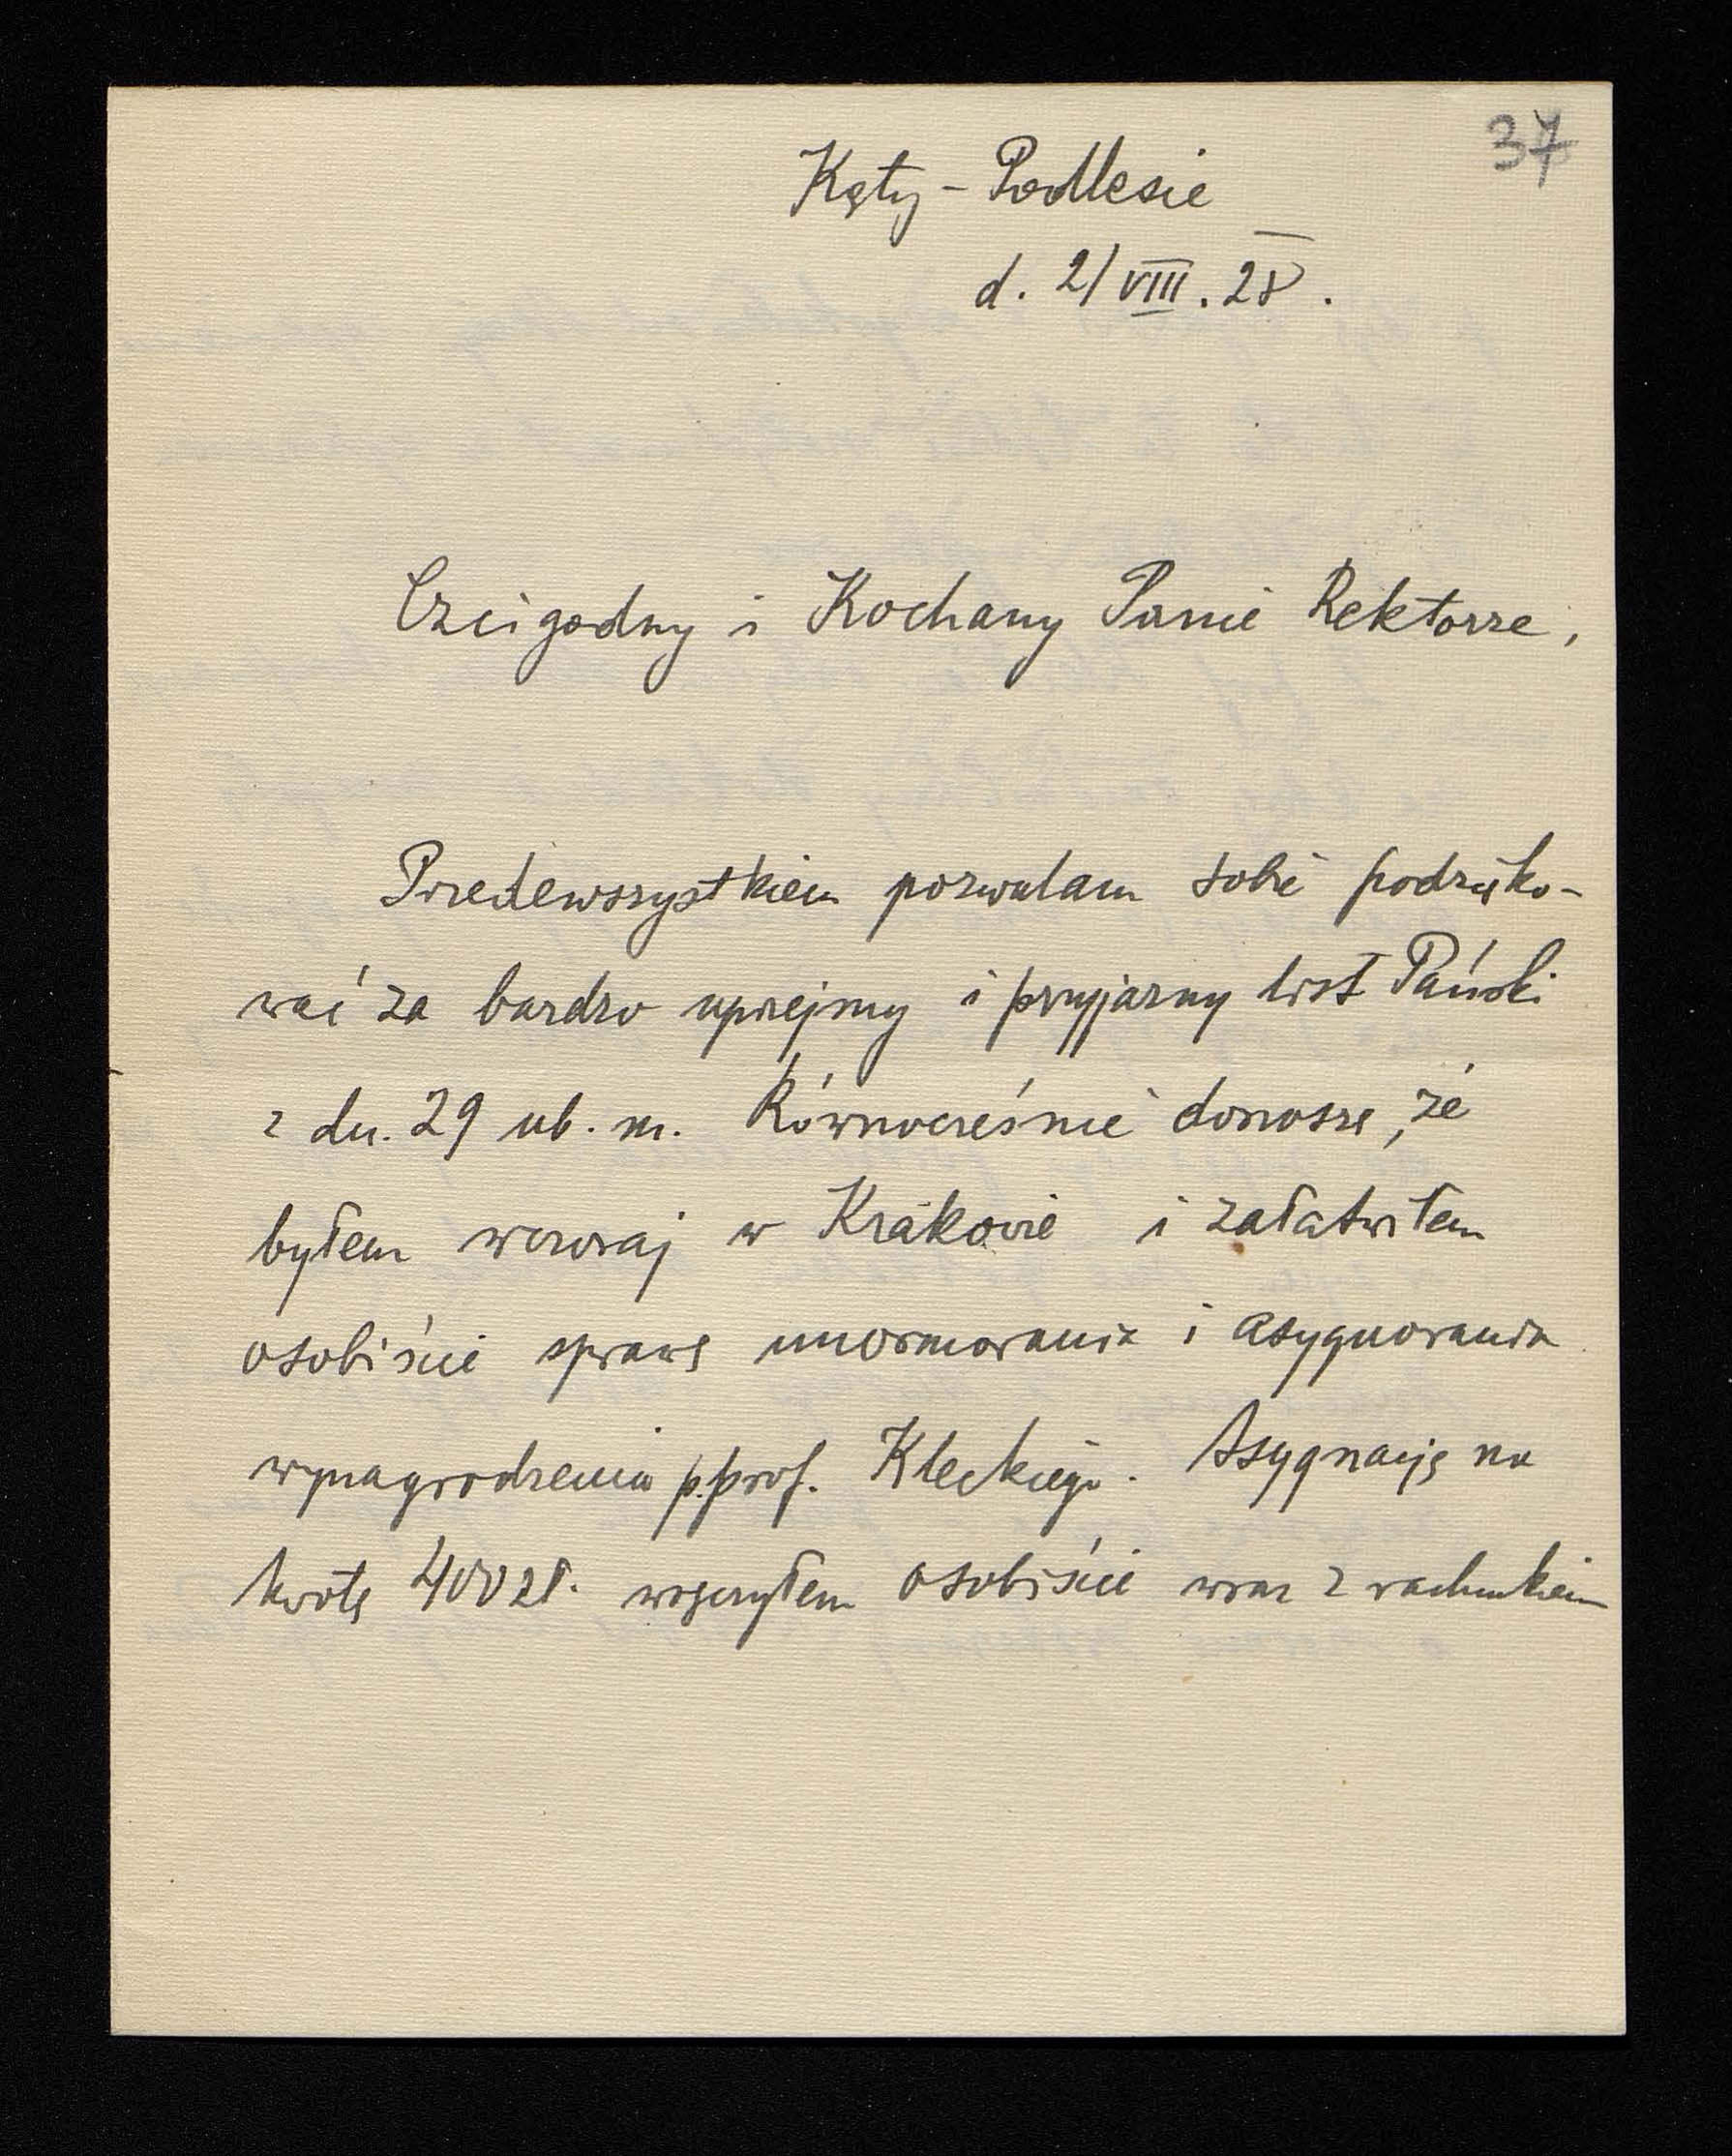 37
Kęty – Podlesie
d. 2/VIII. 28.
Czcigodny i Kochany Panie Rektorze,
Przedewszystkiem pozwalam sobie podzięko-
wać za bardzo uprzejmy i przyjazny list Pański
z dn. 29 ub. m. Równocześnie donoszę, że
byłem wczoraj w Krakowie i załatwiłem
osobiście sprawę unormowania i asygnowania
wynagrodzenia p. prof. Kleckiego. Asygnację na
kwotę 400 zł. wręczyłem osobiście wraz z rachunkiem